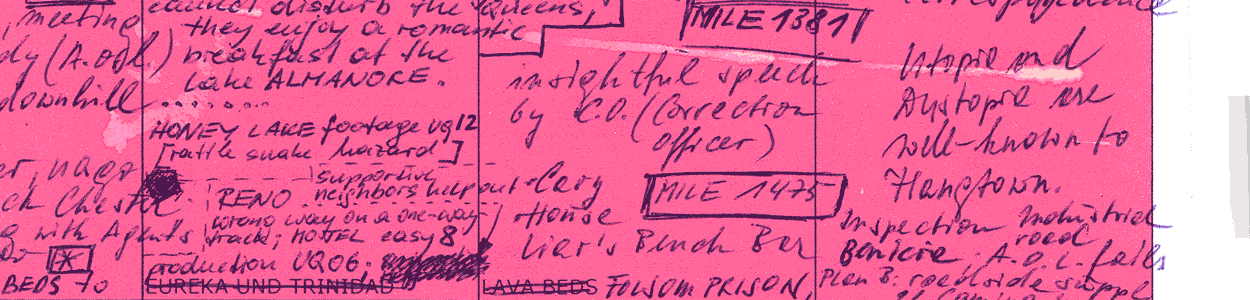 , meeting
dy (A.ogl.)
downhill
er, nago
ck Chester.
g with Agents
BEDS to
cannot disturb the Queens,
they enjoy a romantic
breakfast at the
Lake ALMANORE.
.......
HONEY LAKE footage vq12
[rattle snake hazard]
supportive
RENO neighbors help out
wrong way on a one-way-
track; MOTEL easy 8
production VQ06.
EUREKA UND TRINIDAD
MILE 1381
insightful speech
by C.O. (Correction
officer)
Cary
House
MILE 1475
Liar's Bench Bar
LAVA BEDS FOLSOM PRISON,
correspondence
Utopia and
Dystopia are
well-known to
Hangtown.
Inspection Industrial
road
Benicia. A.O.L. fails
Plan B: roadside